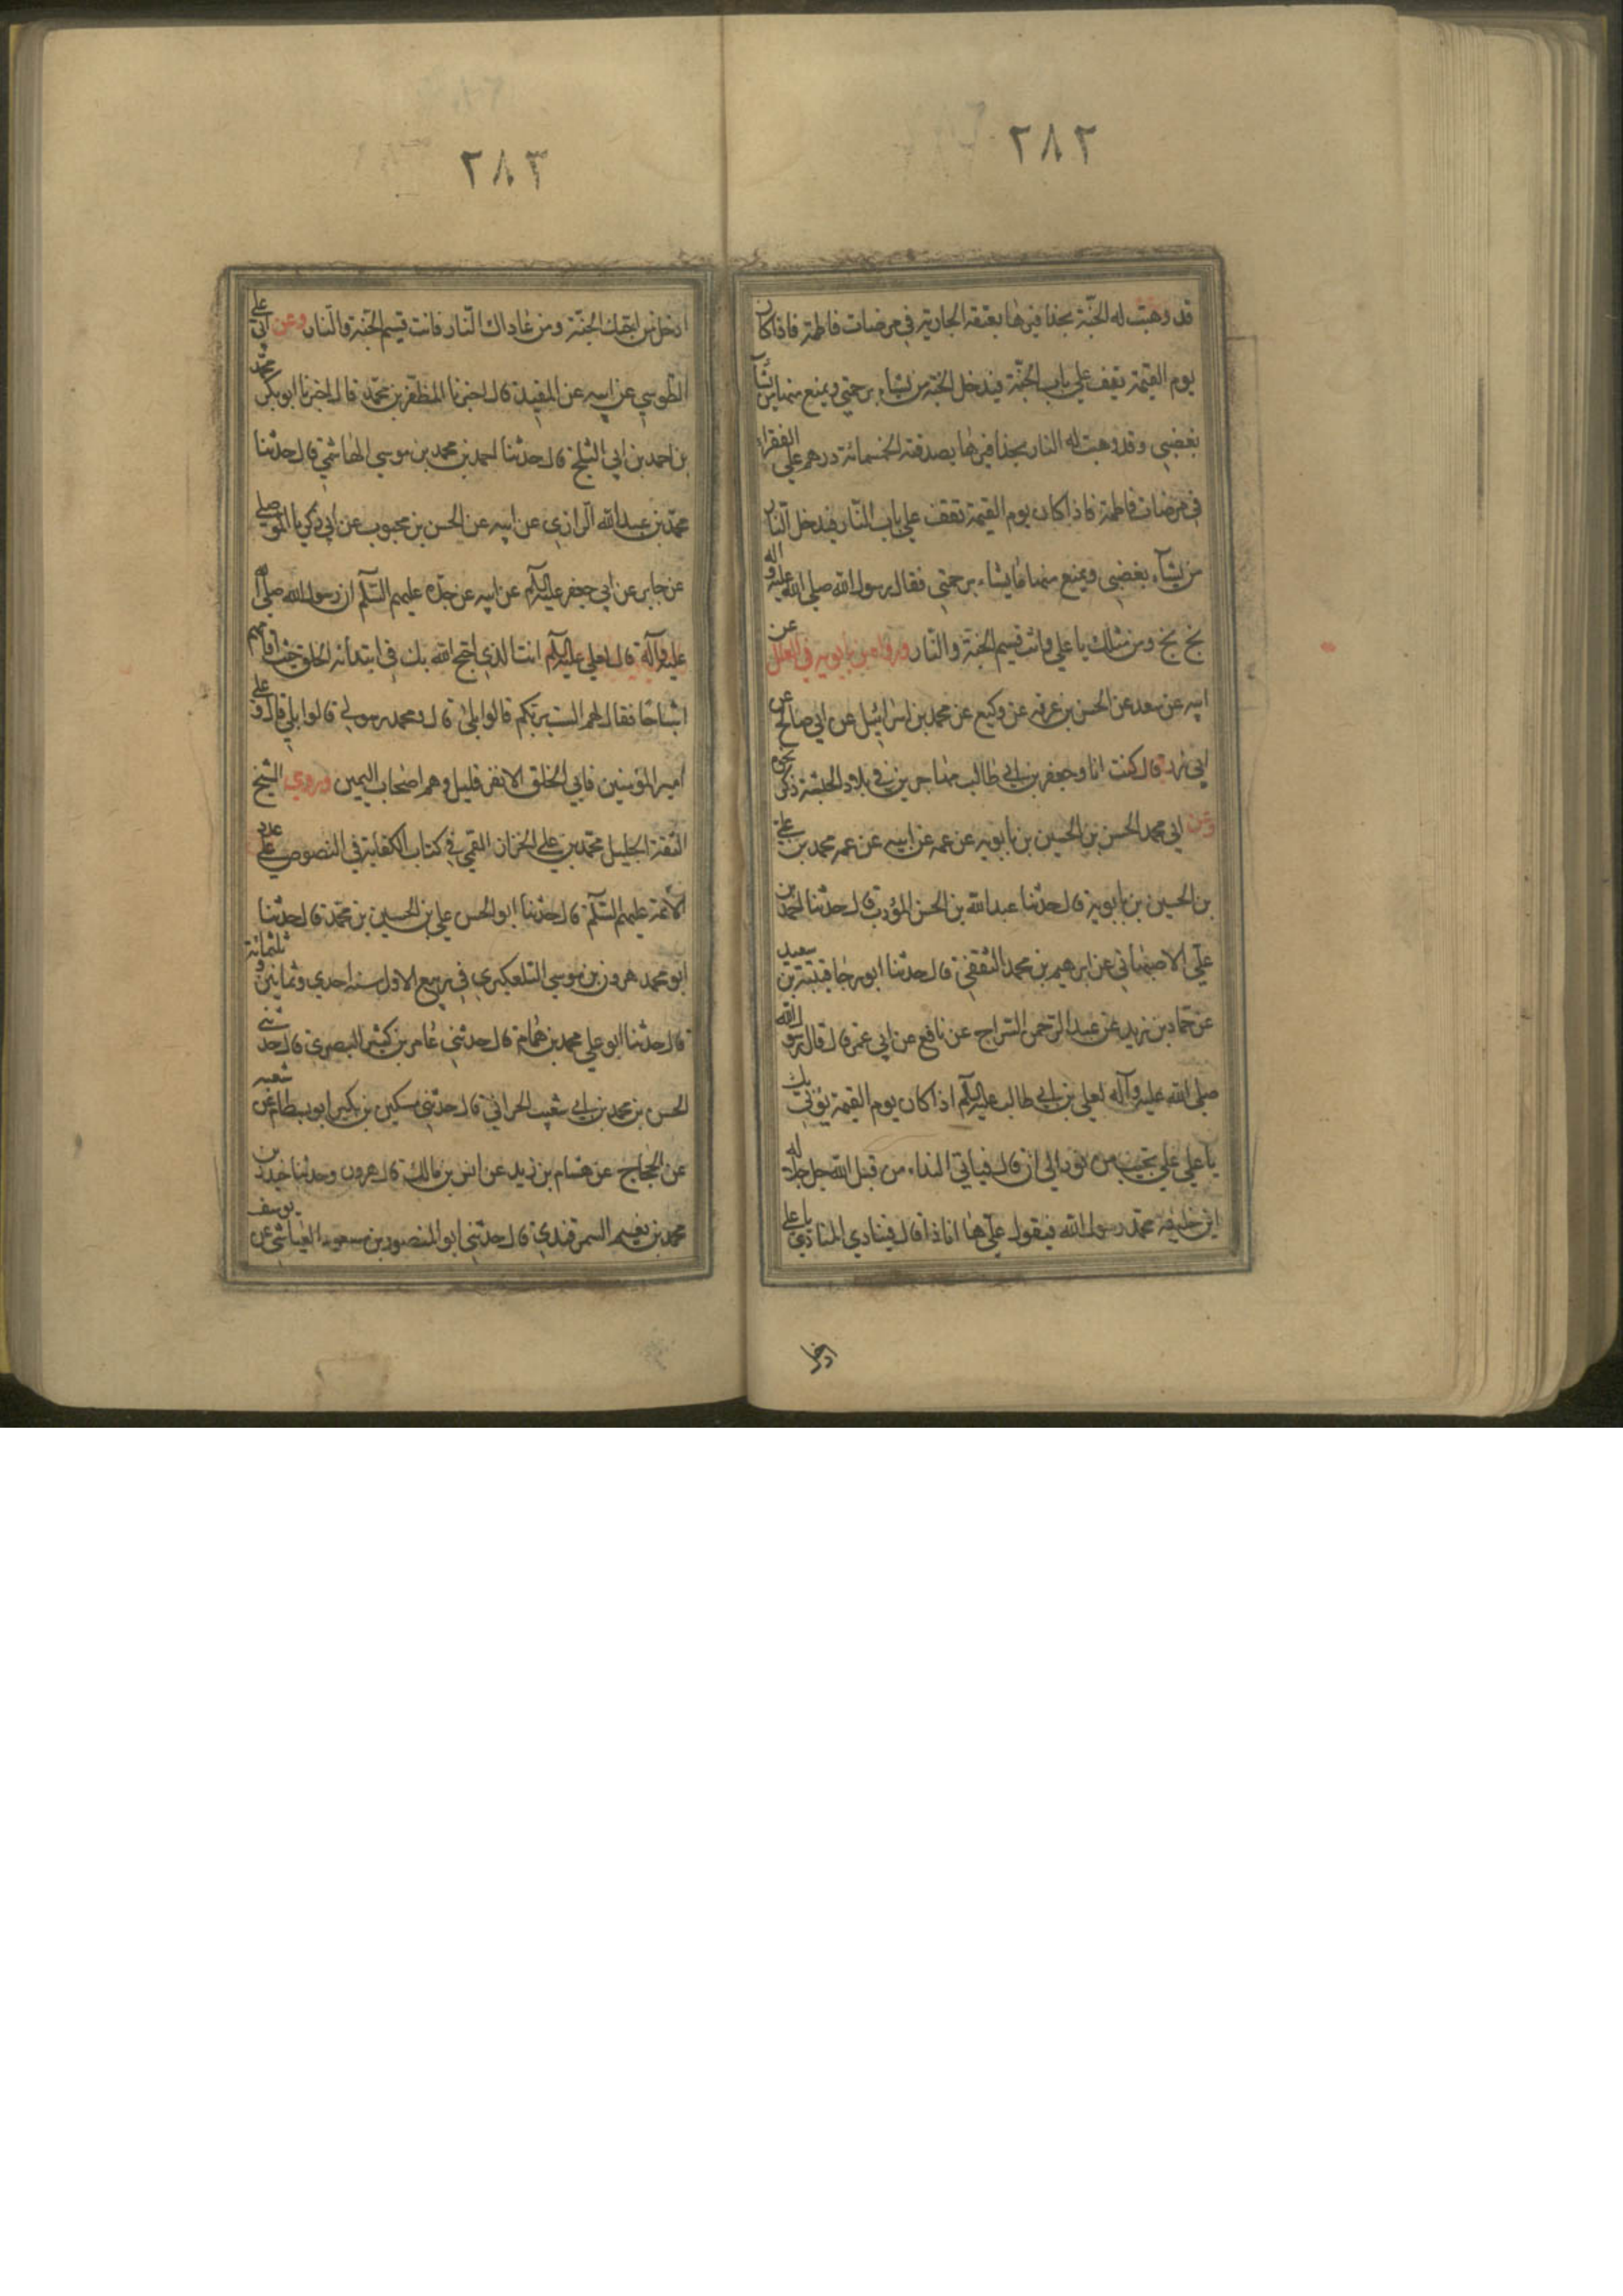 ٢٨٢
قد وهبت له الجنّة بحذافيرها بعتقه الجارية في مرضات فاطمة فاذا كان
يوم القيمة تقف علي باب الجنّة فيدخل الجنة من يشاء برحمتي ويمنع منها من يشاء
بغضبي وقد وهبت له النار بحذافيرها بصدقته الخمسمائة درهم علي الفقراء
في مرضات فاطمة فاذا كان يوم القيمة تقف علي باب النّار فيدخل النّار
من يشآء بغضبي ويمنع منها ما يشاء برحمتي فقال رسول الله صلي الله عليه واله
بخ بخ ومن مثلك يا علي وانت قسيم الجنة والنّار وروا ابن بابويه في العلل عن
ابيه عن سعد عن الحسن بن عرفه عن وكيع عن محمد بن اسرائيل عن ابي صالح عن
ابي ذر قال كنت انا وجعفر بن ابي طالب مهاجرين في بلاد الحبشة ذكر نحوه
وعن ابي محمد الحسن بن الحسين بن بابويه عن عمه عن ابيه عن عمه محمد بن علي
بن الحسين بن بابويه قال حدثنا عبد الله بن الحسن المؤدب قال حدثنا احمد بن
علّي الاصبهاني عن ابرهيم بن محمد الثقفي قال حدثنا ابو رجا قتيبة بن سعيد
عن حماد بن زيد عن عبد الرحمن السّراج عن نافع عن ابي عمر قال قال رسول الله
صلي الله عليه وآله لعلي بن ابي طالب عليه السلام اذا كان يوم القيمة يؤتي بك
يا علي علي نجيب من نور الي ان قال فياتي النداء من قبل الله جل جلاله
اين خليفة محمّد رسول الله فيقول علّي ها انا ذا قال فينادي المنادي يا علي
ادخل
٢٨٣
ادخل من احبّك الجنّة ومن عاداك النّار فانت قسيم الجنّة والنّار وعن ابي علي
الطوسي عن ابيه عن المفيد قال اخبرنا المظفر بن محمّد قال اخبرنا ابو بكر محمّد
بن احمد بن ابي الثلج قال حدثنا احمد بن محمد بن موسي الهاشمي قال حدثنا
محمّد بن عبد الله الرازي عن ابيه عن الحسن بن محبوب عن ابي زكريا الموصلي
عن جابر عن ابي جعفر عليه السلام عن ابيه عن جدّه عليهم السّلام ان رسول الله صلي الله
عليه وآله قال لعلي عليه السلام انت الذي احتج الله بك في ابتدائه الخلق حيث اقامهم
اشباحا فقال لهم الست بربّكم قالوا بلي قال ومحمد رسولي قالوا بلي قال وعلي
امير المؤمنين فابي الخلق الا نفر قليل وهم اصحاب اليمين وروي الشيخ
الثقة الجليل محمّد بن علي الخزاز القمي في كتاب الكفاية في النصوص علي عدد
الائمة عليهم السّلام قال حدثنا ابو الحسن علي بن الحسين بن محمّد قال حدثنا
ابو محمد هرون بن موسي التلعكبري في ربيع الاول سنه احدي وثمانين وثلثمائة
قال حدثنا ابو علي محمد بن همام قال حدثني عامر بن كثير البصري قال حدثني
الحسن بن محمد بن ابي شعيب الحراني قال حدثني مسكين بن بكير ابو بسطام عن شعبه
عن الحجاج عن هشام بن زيد عن انس بن مالك قال هرون وحدثنا حيدر بن
محمد بن نعيم السمرقندي قال حدثني ابو النصور بن مسعود العياشي عن يوسف